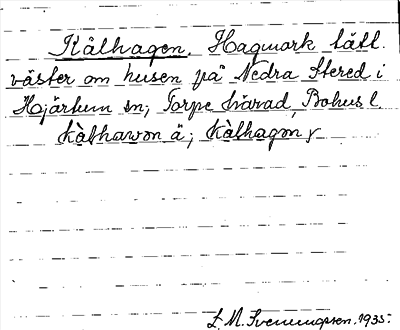 Kålhagen. Hagmark tätt
väster om husen på Nedra Stered i
Hjärtum sn; Torpe härad, Bohusl.
kàlhawon ä; kàlhagon, r
L. M. Svenungsson. 1935.